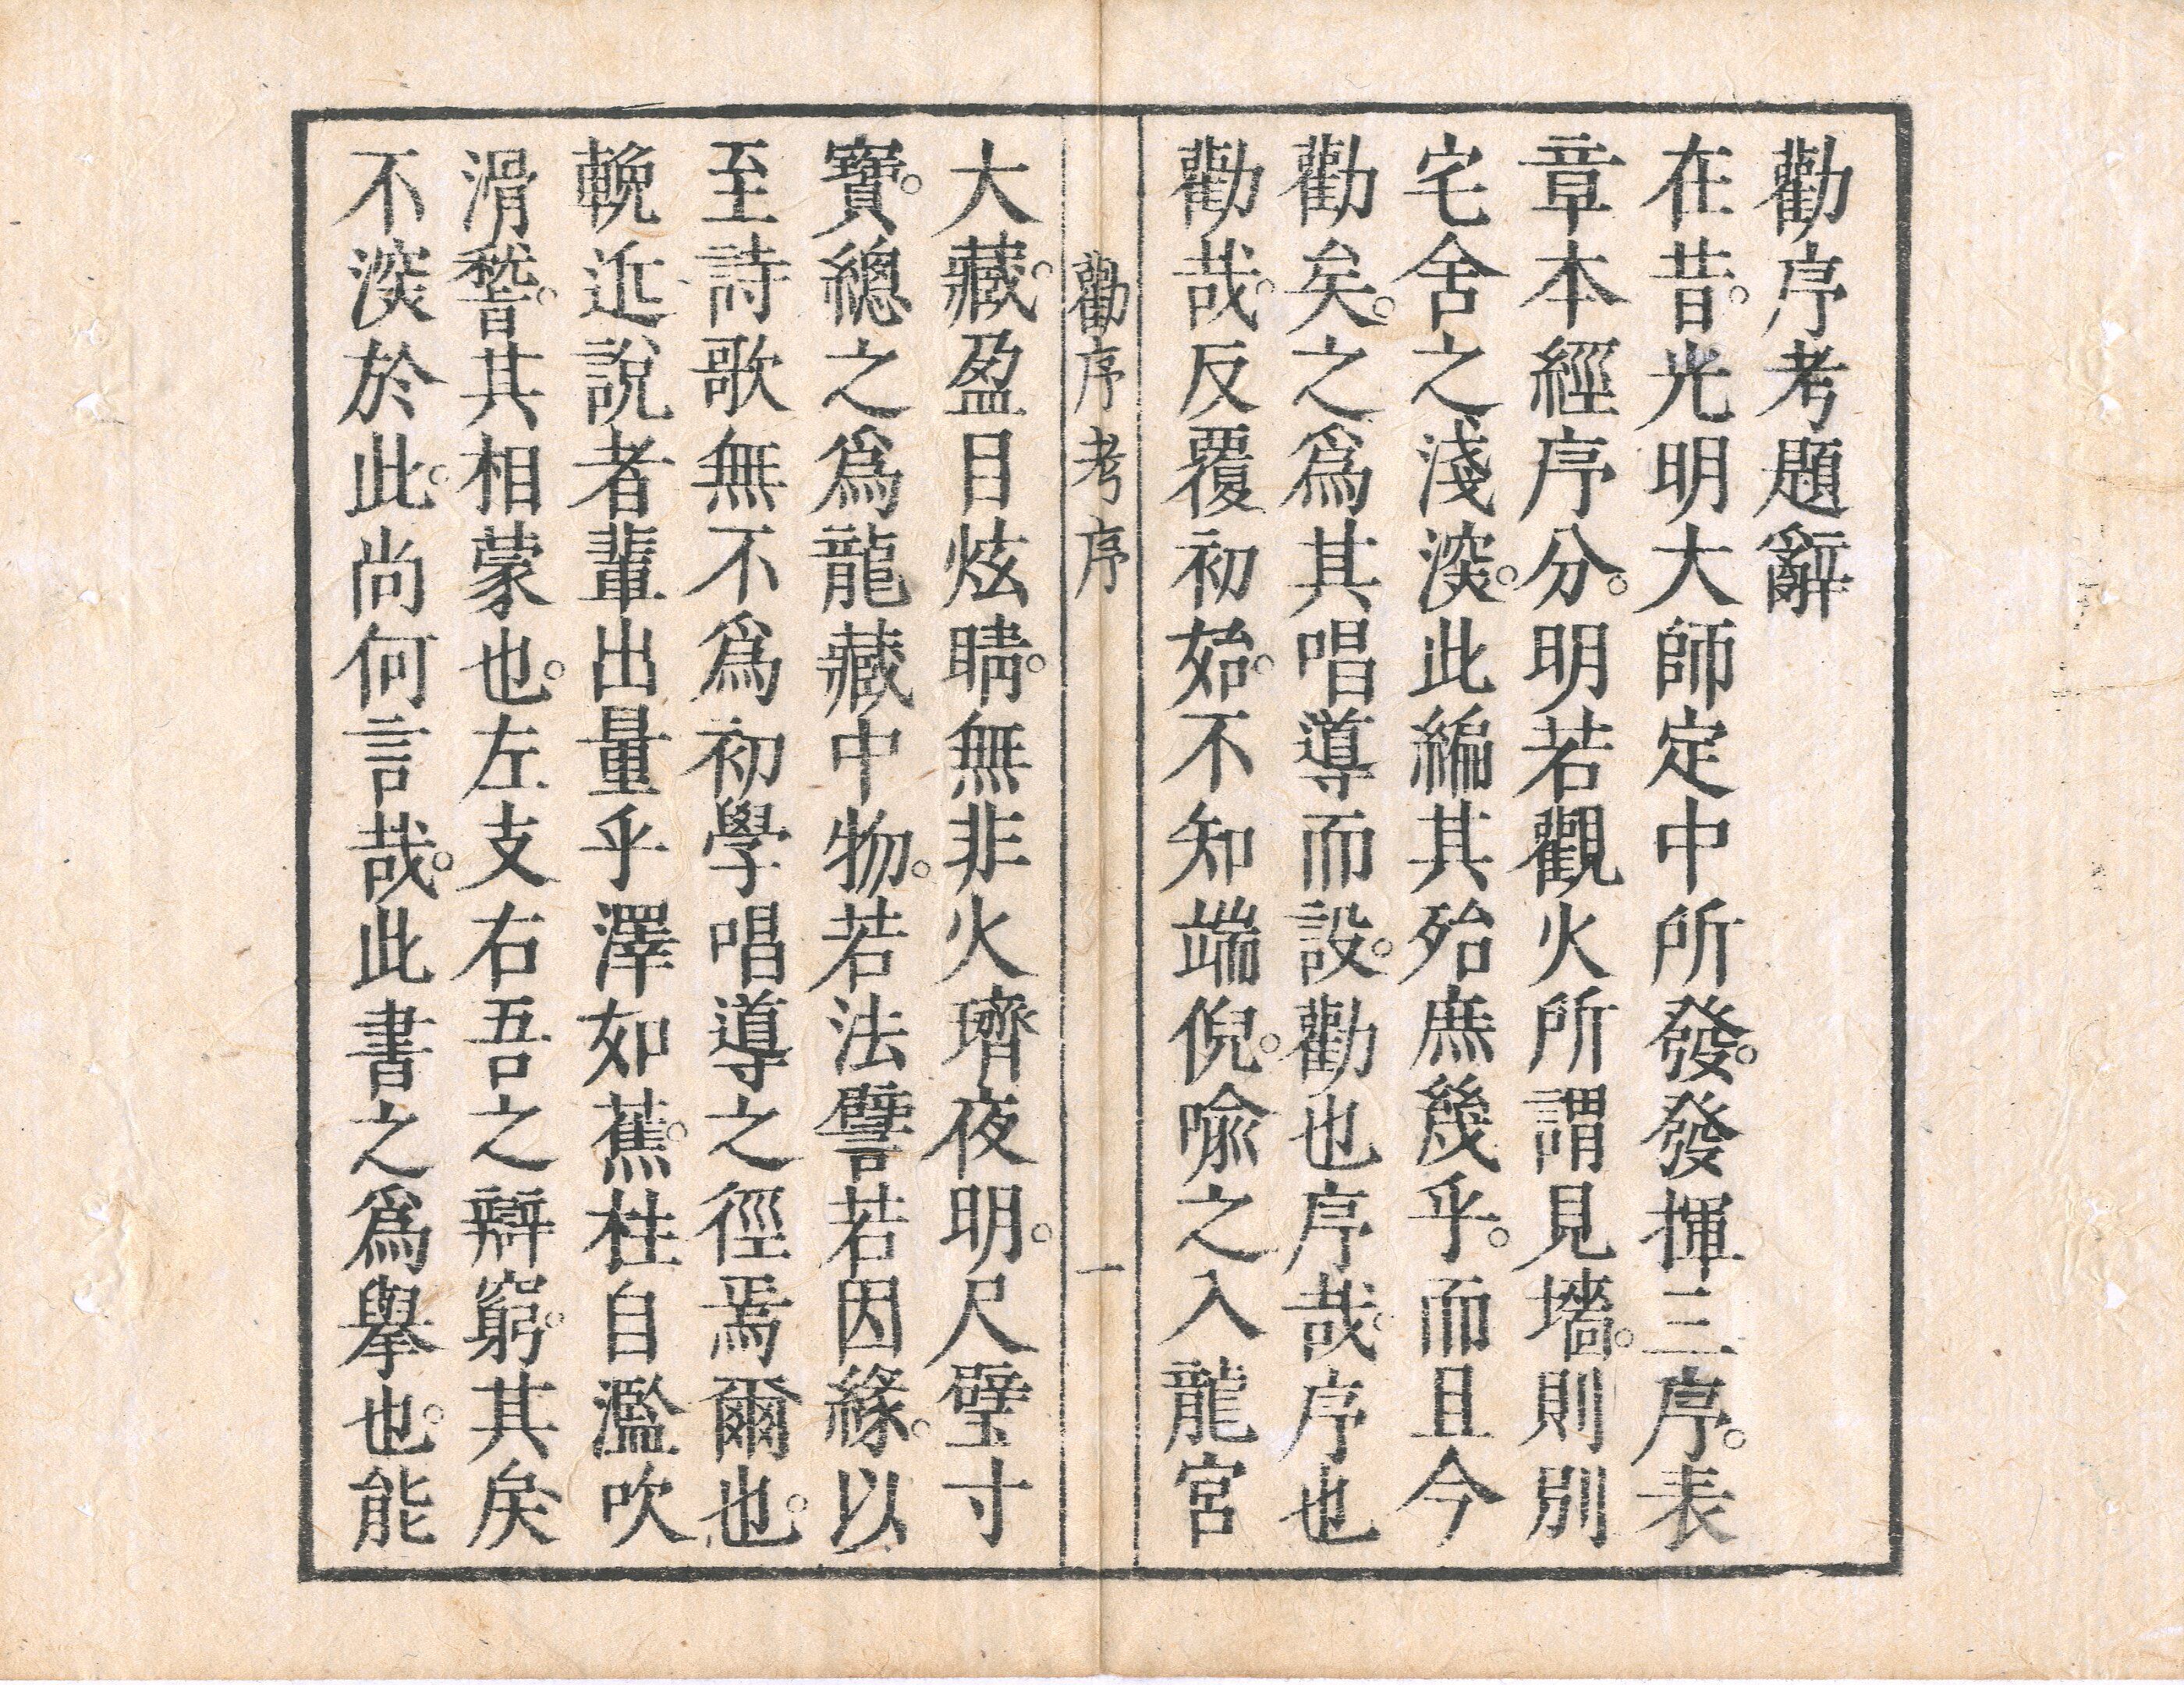 勸序考題辭
在昔。光明大師定中所發。發揮三序。表
章本經序分。明若觀火所謂見墻。則別
宅舍之淺深。此編其殆庶幾乎。而且今
勸矣。之爲其唱導而設。勸也序哉。序也
勸哉。反覆初始。不知端倪。喩之入龍宮
勸序考序 一
大藏。盈目炫睛。無非火齊夜明。尺璧寸
寶。總之爲龍藏中物。若法譬若因緣。以
至詩歌無不爲初學唱導之徑焉爾也。
輓近說者輩出量乎澤如蕉。柱自濫吹
滑稽。其相蒙也。左支右吾之辯窮。其戾
不深於此。尚何言哉。此書之爲擧也。能